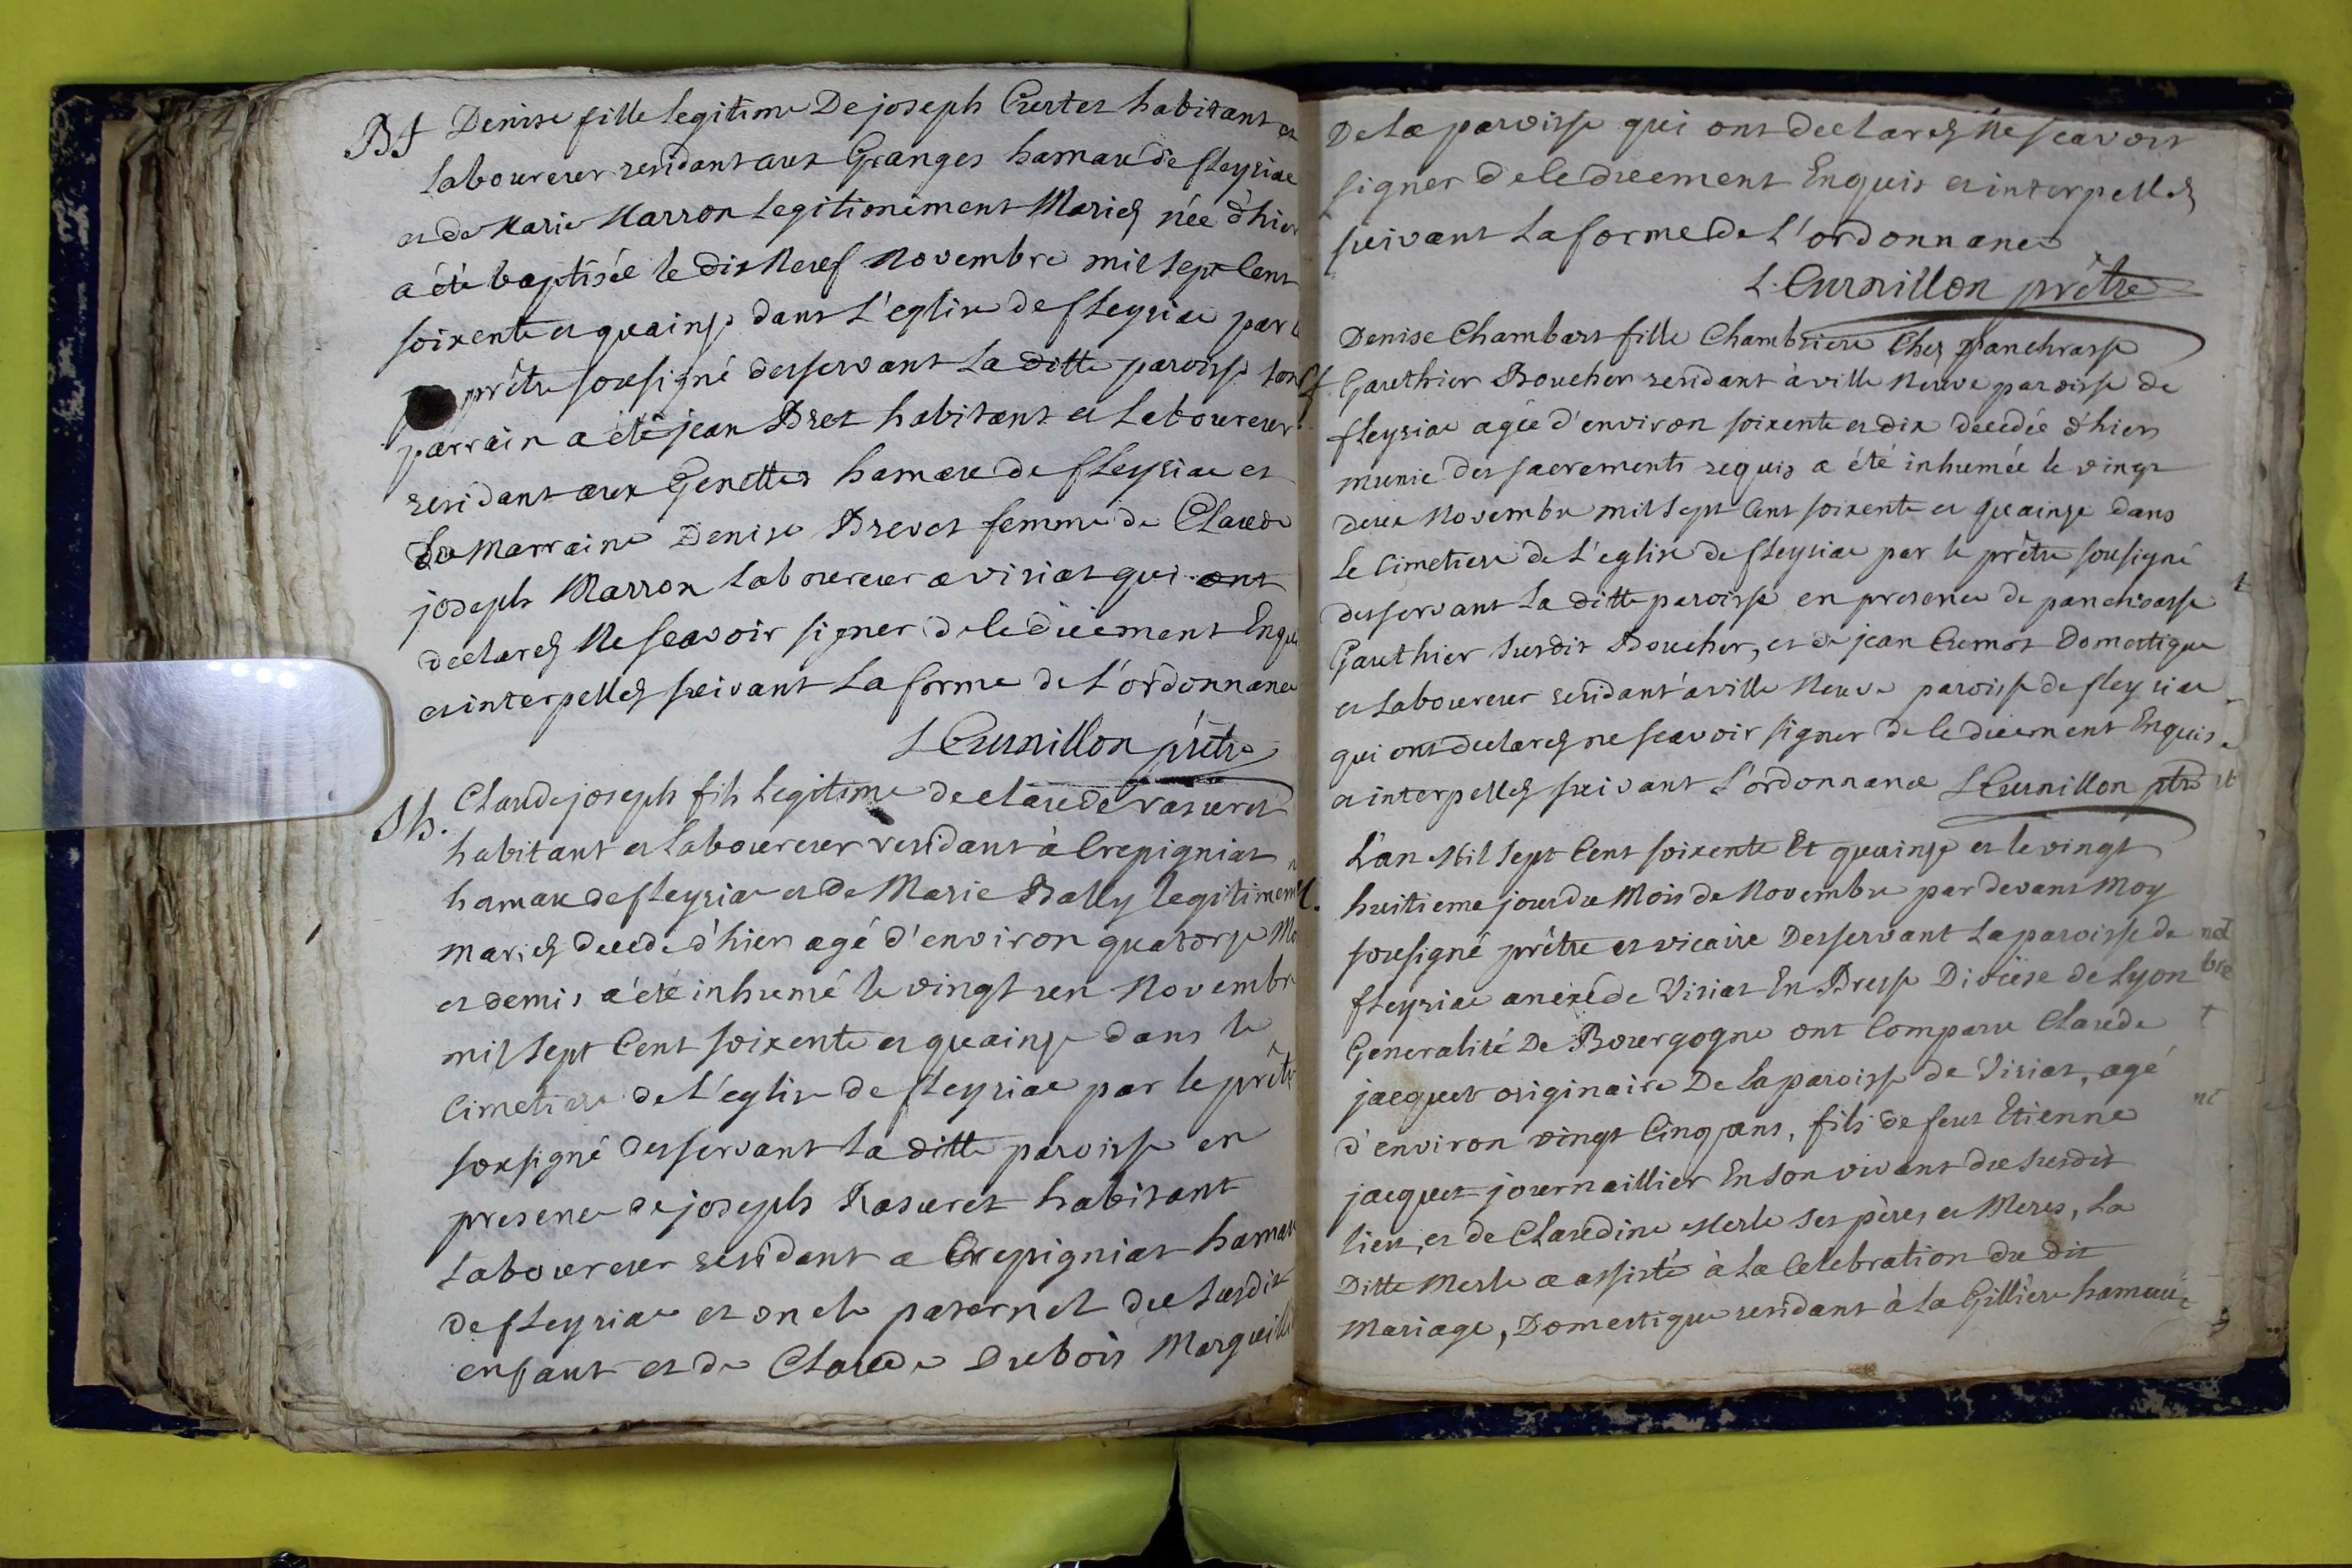 Bf Denise fille legitime De joseph Curtet habitant et
laboureur residant aux Granges hamau de fleyriac
et de Marie Marron legitimement Mariés née d'hier
a été baptisée le dix Neuf Novembre mil sept Cent
soixente et quainze dans L'eglise de fleyriac par le
prêtre sousigné desservant La ditte paroisse son
parrain a été jean Bret habitant et Laboureur
residant aux Genettes hamau de fleyriac et
La Marraine Denise Brevet femme de Claude
joseph Marron laboureur a viriat qui ont
declarés Ne scavoir signer de ce duement Enquis
et interpellés suivant La forme de L'ordonnance
L Curnillon prêtre
Sb. Claude joseph fils Legitime de claude rasuret
habitant et laboureur residant à Crepigniat
hamau de fleyriac et de Marie Bally legitiment
Mariés decede d'hier agé d'environ quatorze Mois
et demis a été inhumé le vingt un Novembre
mil sept Cent soixente et quainze dans le
Cimetiere de L'eglise de fleyriac par le prêtre
sousigné desservant La ditte paroisse en
presence de joseph Rasuret habitant
Laboureur residant a Crepigniat hamau
de fleyriac et oncle paternel du susdit
enfant et de Claude Dubois Marguillier
De La paroisse qui ont declarés Ne scavoir
signer de ce duement Enquis et interpellés
suivant La forme de L'ordonnance
L. Curnillon prêtre
Denise Chambart fille Chambriere Chez panchrasse
Gauthier Boucher residant à ville Neuve paroisse de
fleyriac agée d'environ soixente et dix decedée d'hier
munie des sacrements requis a été inhumée le vingt
deux Novembre mil sept Cent soixente et quainze dans
Le Cimetiere de L'eglise de fleyriac par le prêtre sousigné
desservant La ditte paroisse en presence de panchrasse
Gauthier susdit Boucher, et de jean Curnot Domestique
et Laboureur residant à ville Neuve paroisse de fleyriac
qui ont declarés ne scavoir signer de ce duement Enquis
et interpellés suivant L'ordonnance L Curnillon ptre
L'an Mil sept Cent soixente Et quainze et le vingt
huitieme jour du Mois de Novembre par devant Moy
sousigné prêtre et vicaire Desservant La paroisse de
fleyriac anexe de Viriat En Bresse Diocèse de Lyon
Generalité De Bourgogne ont Comparu Claude
jacquet originaire De La paroisse de Viriat, agé
d'environ vingt Cinq ans, fils de feut Etienne
jacquet journaillier En son vivant du susdit
lieu, et de Claudine Merle ses pères et Meres, La
Ditte Merle a assisté à La Celebration du dit
Mariage, Domestique residant à La Gilliere hamau